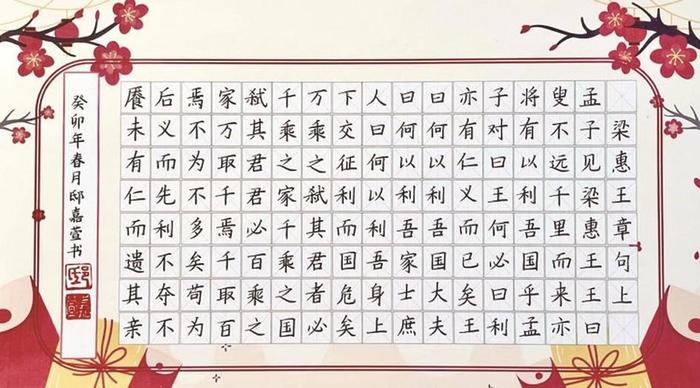 梁惠王章句上
孟子见梁惠王王曰
叟不远千里而来亦
将有以利吾国乎孟
子对曰王何必曰利
亦有仁义而已矣王
曰何以利吾国大夫
曰何以利吾家士庶
人曰何以利吾身上
下交征利而国危矣
万乘之弑其君者必
千乘之家千乘之国
弑其君君必百乘之
家万取千焉千取百
焉不为不多矣苟为
后义而先利不夺不
餍未有仁而遗其亲
癸卯年春月邸嘉萱书
邸